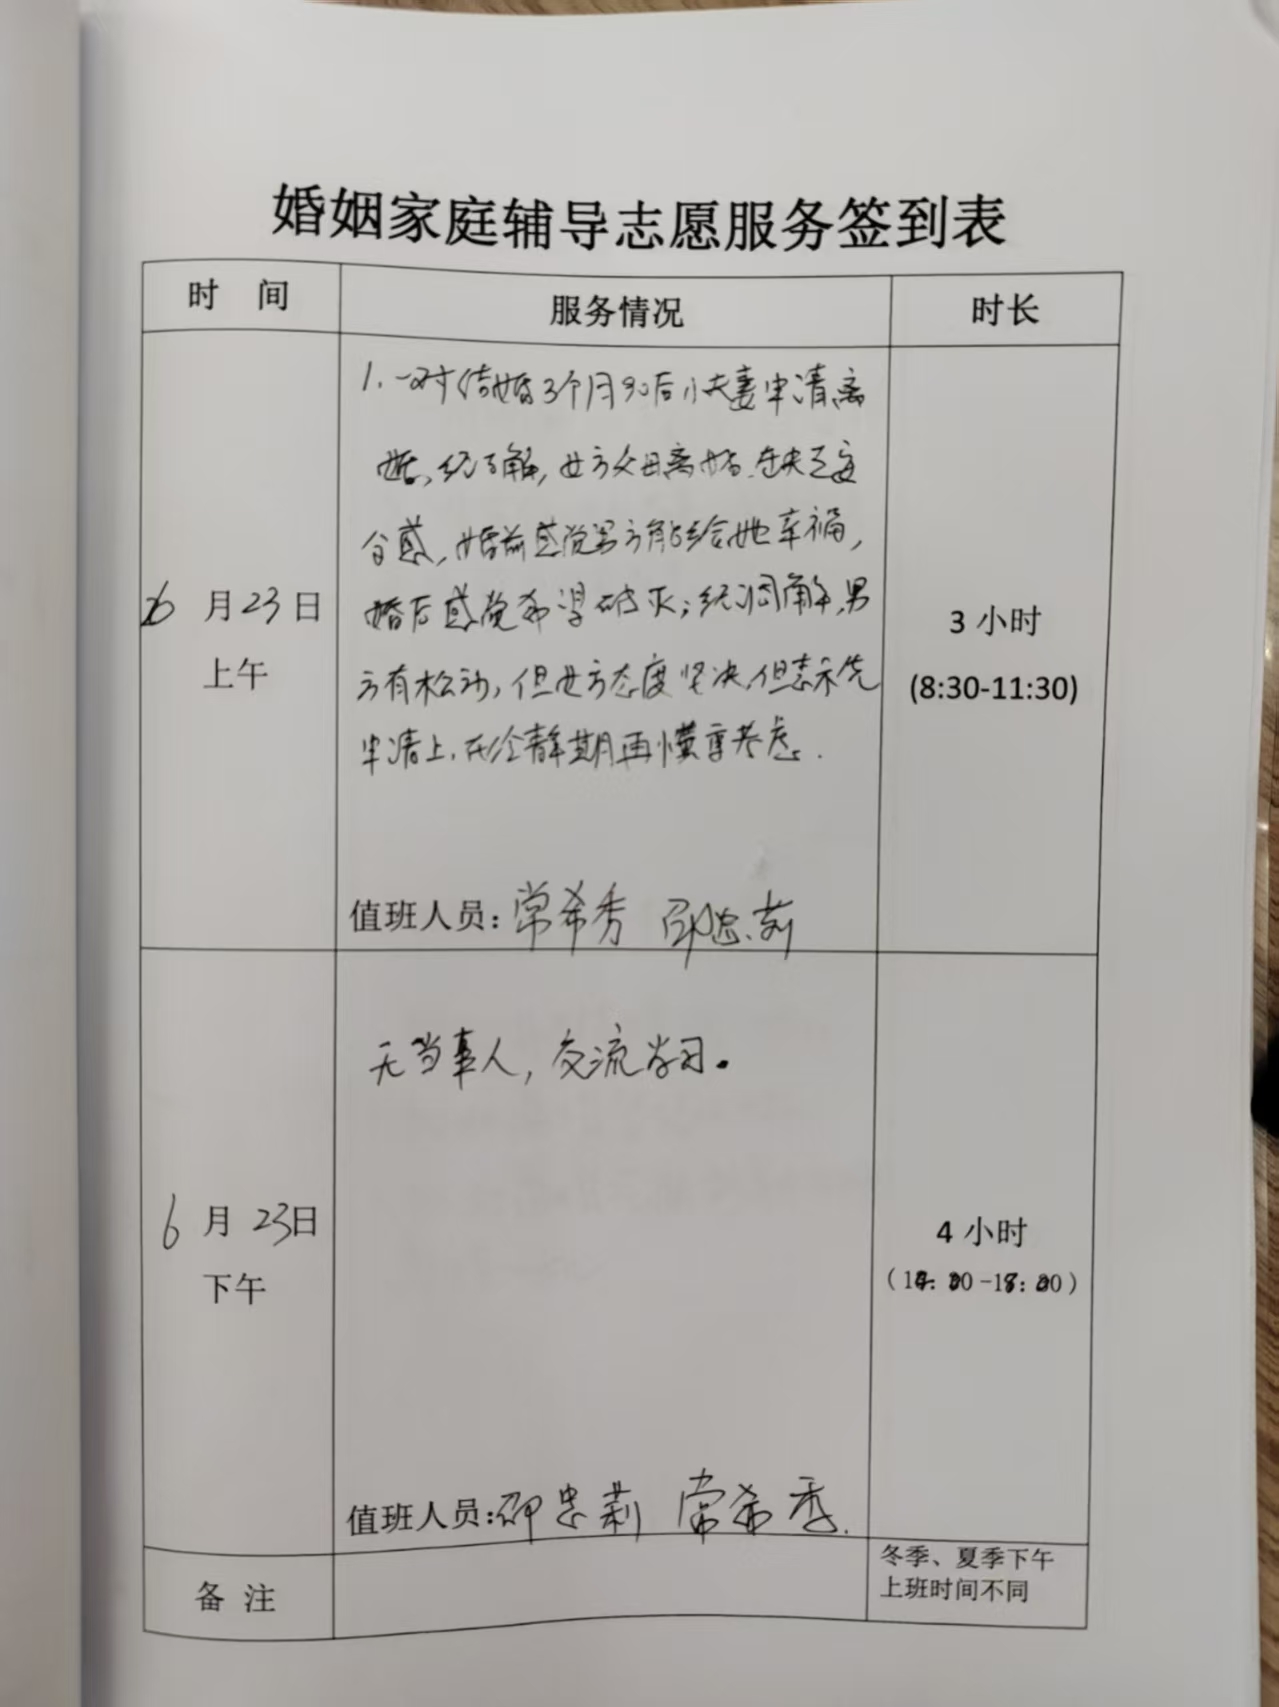 婚姻家庭辅导志愿服务签到表
时 间
服务情况
时长
1.一对结婚3个月90后小夫妻申请离
婚,经了解,女方父母离婚,缺乏安
全感,婚前感觉男方能给她幸福,
婚后感觉希望破灭;经调解,男
方有松动,但女方态度坚决,但表示先
申请上,在冷静期再慎重考虑.
6月23日
上午
3 小时
(8:30-11:30)
值班人员:常希秀 邵忠莉
无当事人,交流学习。
6月23日
下午
4 小时
值班人员:邵忠莉 常希秀.
备 注
冬季、夏季下午
上班时间不同